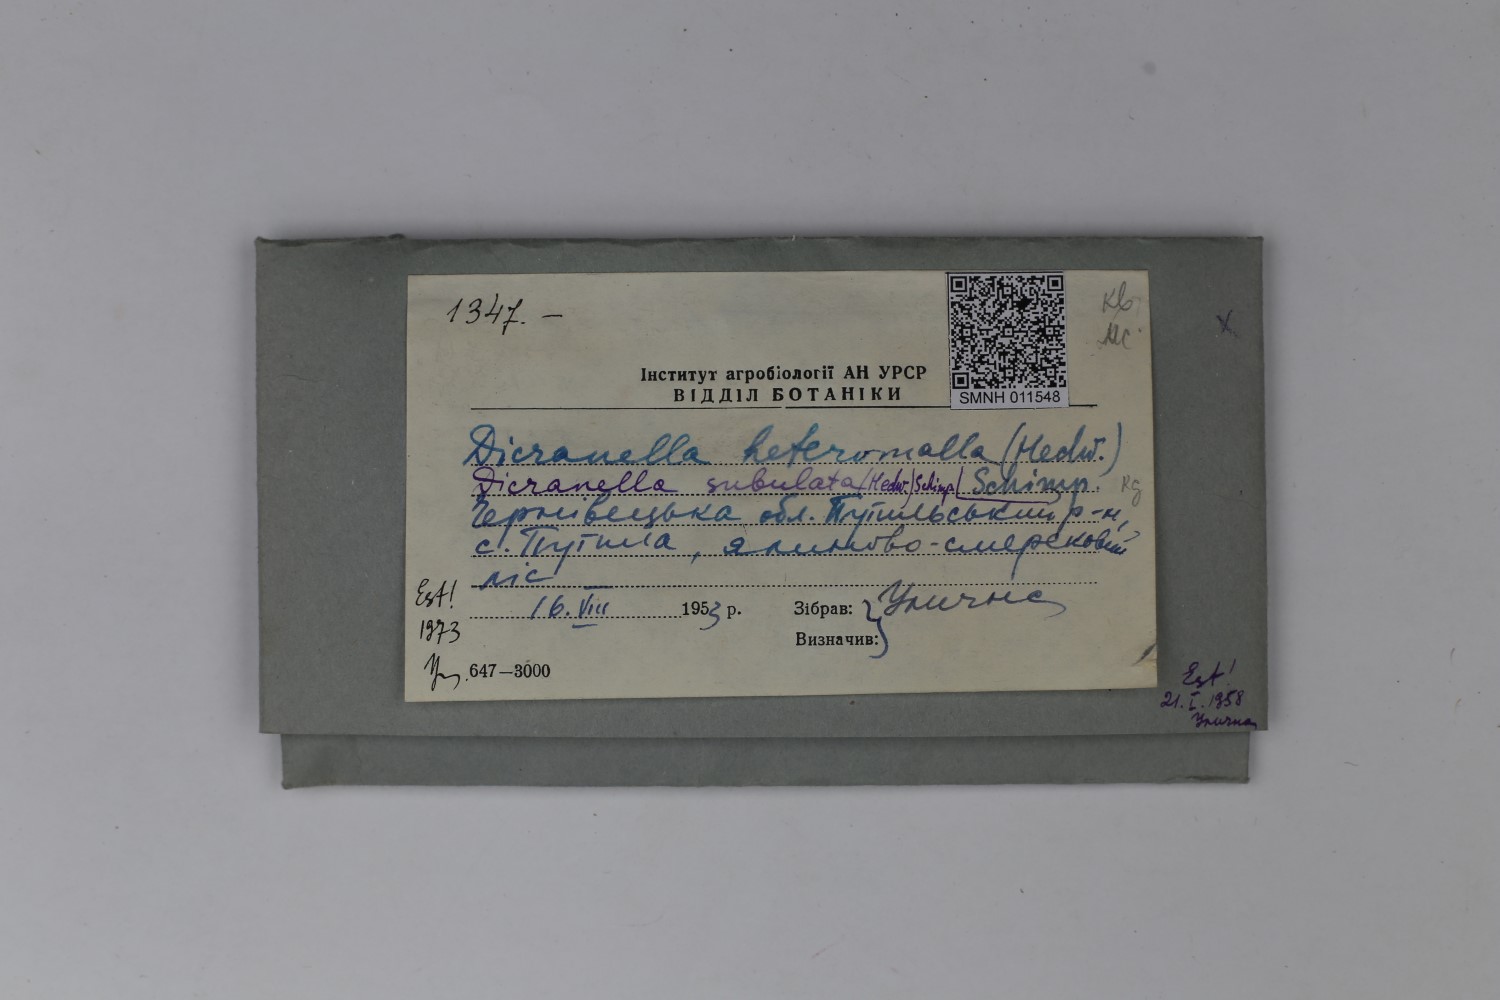 1347. –
Кв
Мс
Інститут агробіології АН УРСР
ВІДДІЛ БОТАНІКИ
SMNH 011548
Dicranella heteromalla (Hedw.)
Dicranella subulata (Hedw.) Schimp. Schimp.
Rg
Чернівецька обл. Путильський р-н,
с. Путила, ялиново-смерековий
ліс
16. VIII 1953 р.
Зібрав: Улична
Визначив:
Est!
1973
Ул.
647—3000
x
Est!
21. I. 1958
Улична